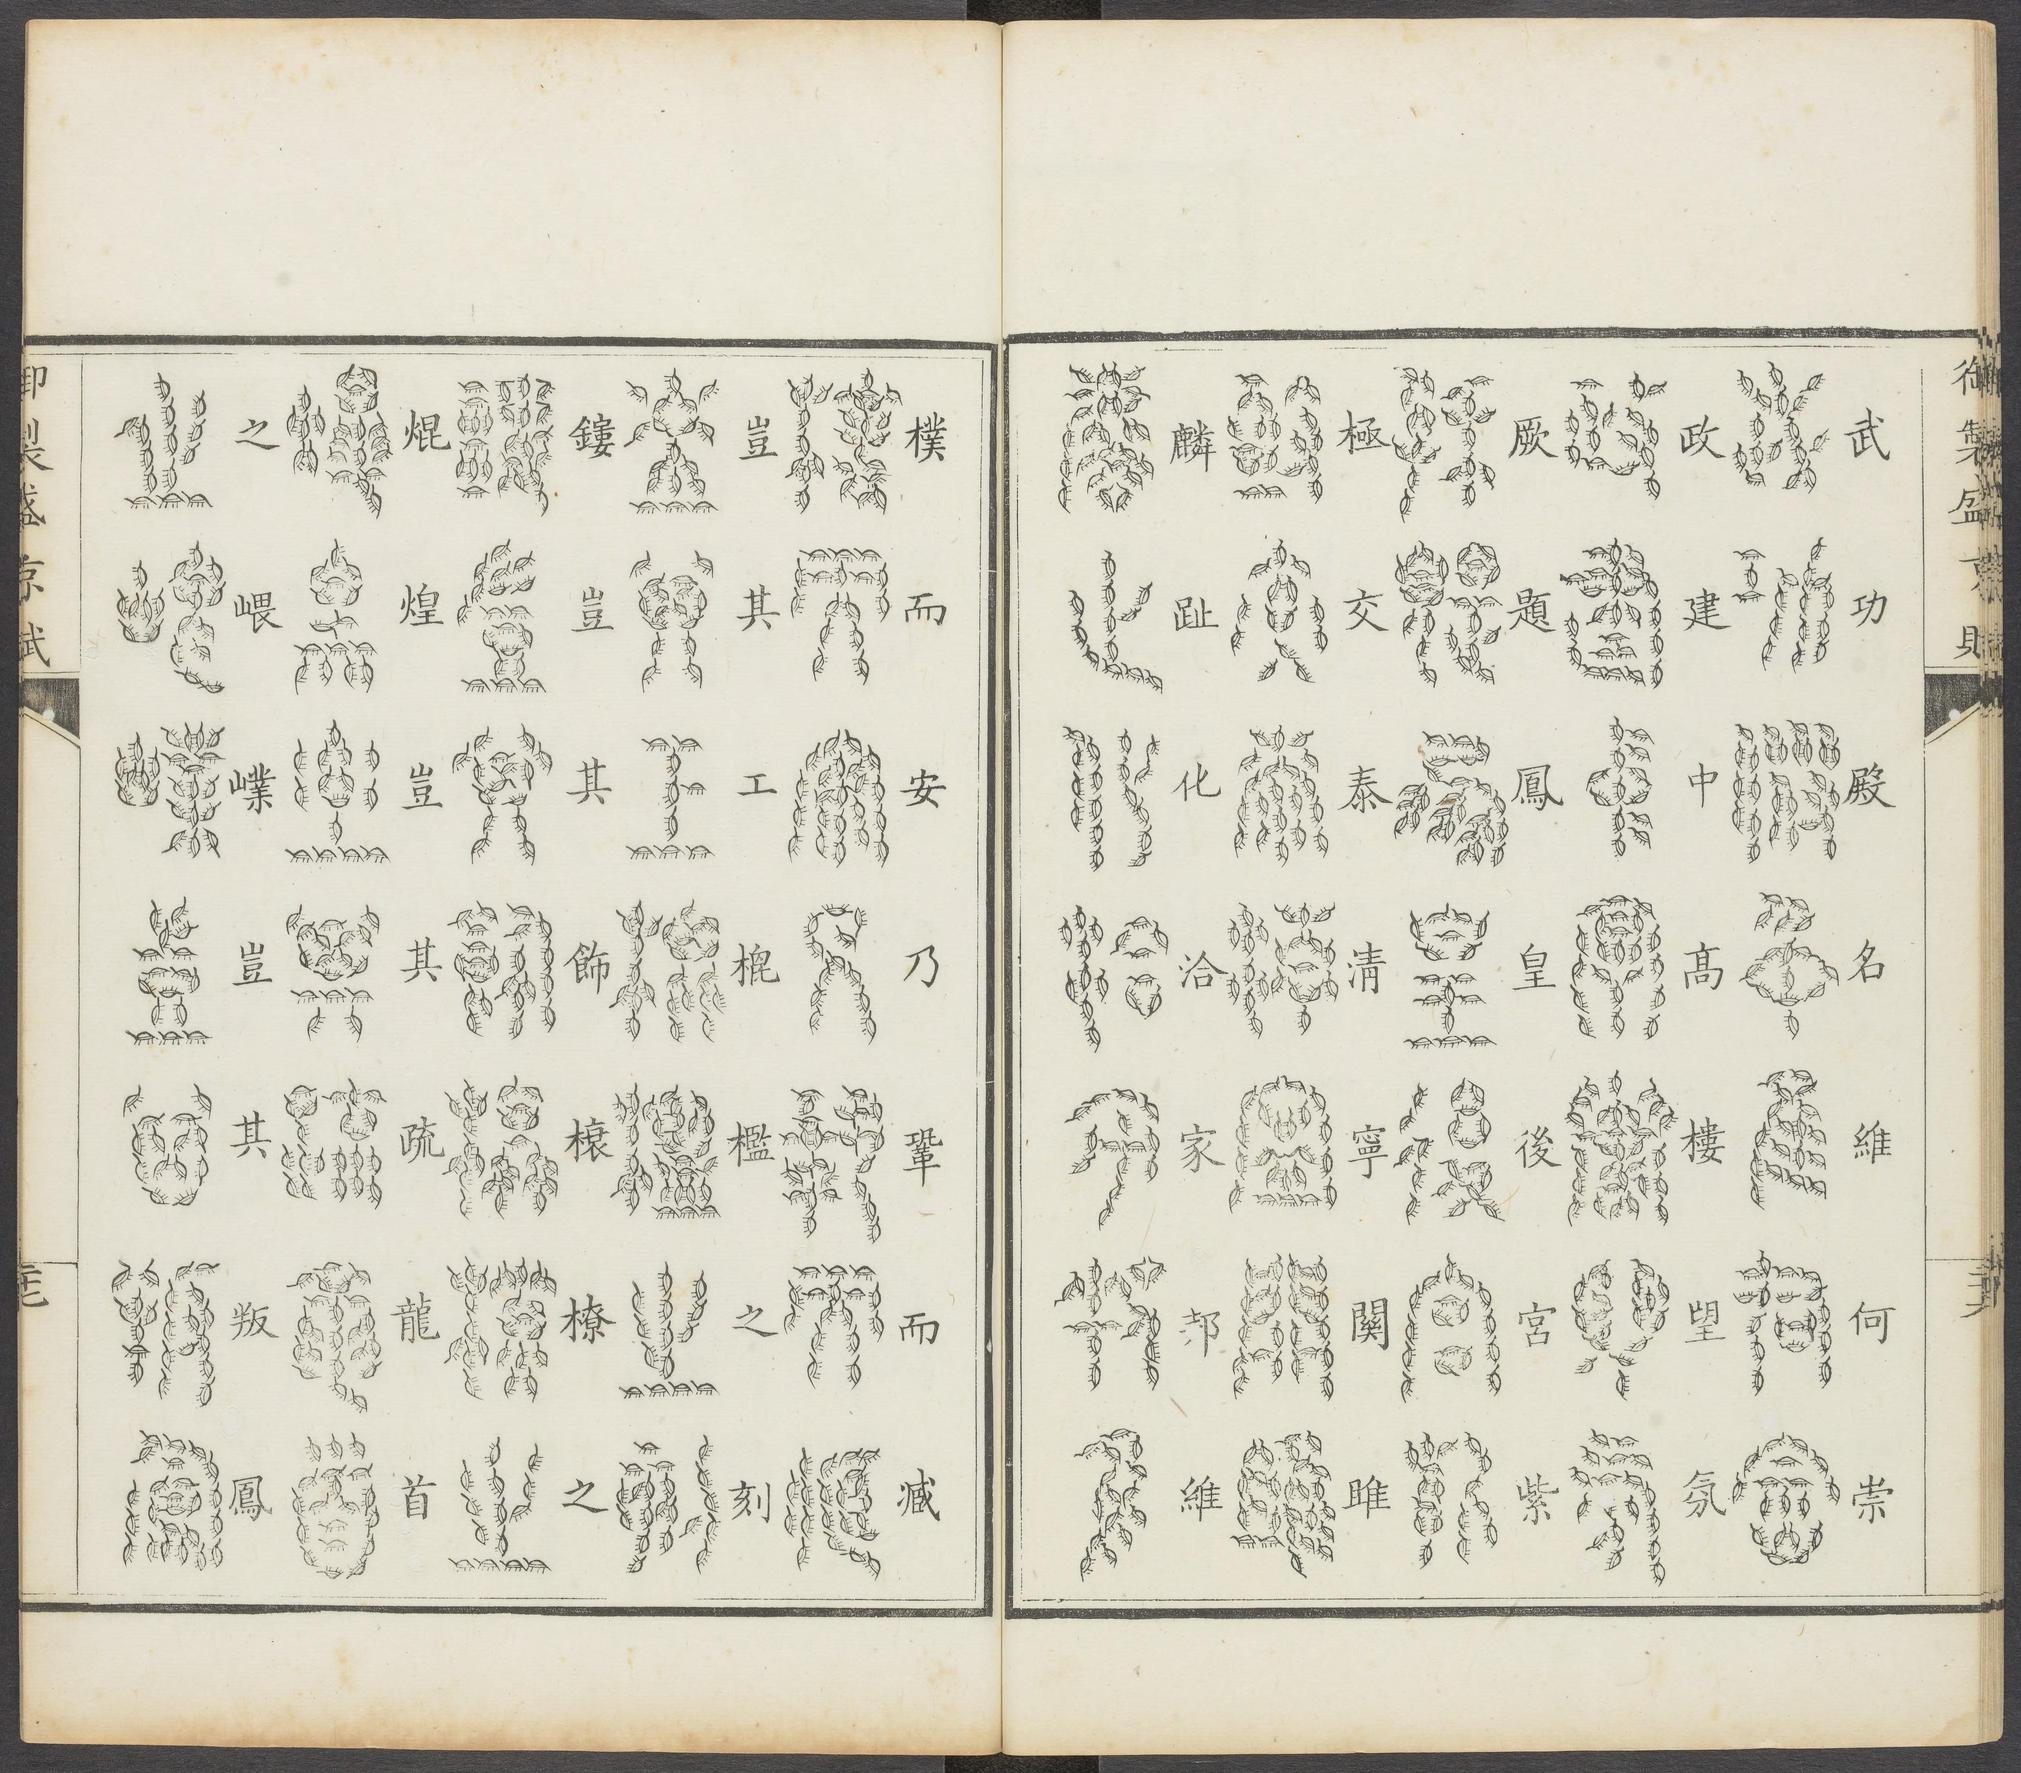 武功殿名維何崇
政建中高樓望氛
厥題鳳皇後宮紫
極交泰清寧關雎
麟趾化洽家邦維
樸而安乃鞏而臧
豈其工棍檻之刻
鏤豈其飾榱橑之
焜煌豈其疏龍首
之㟪嶫豈其叛鳳
御製盛京賦